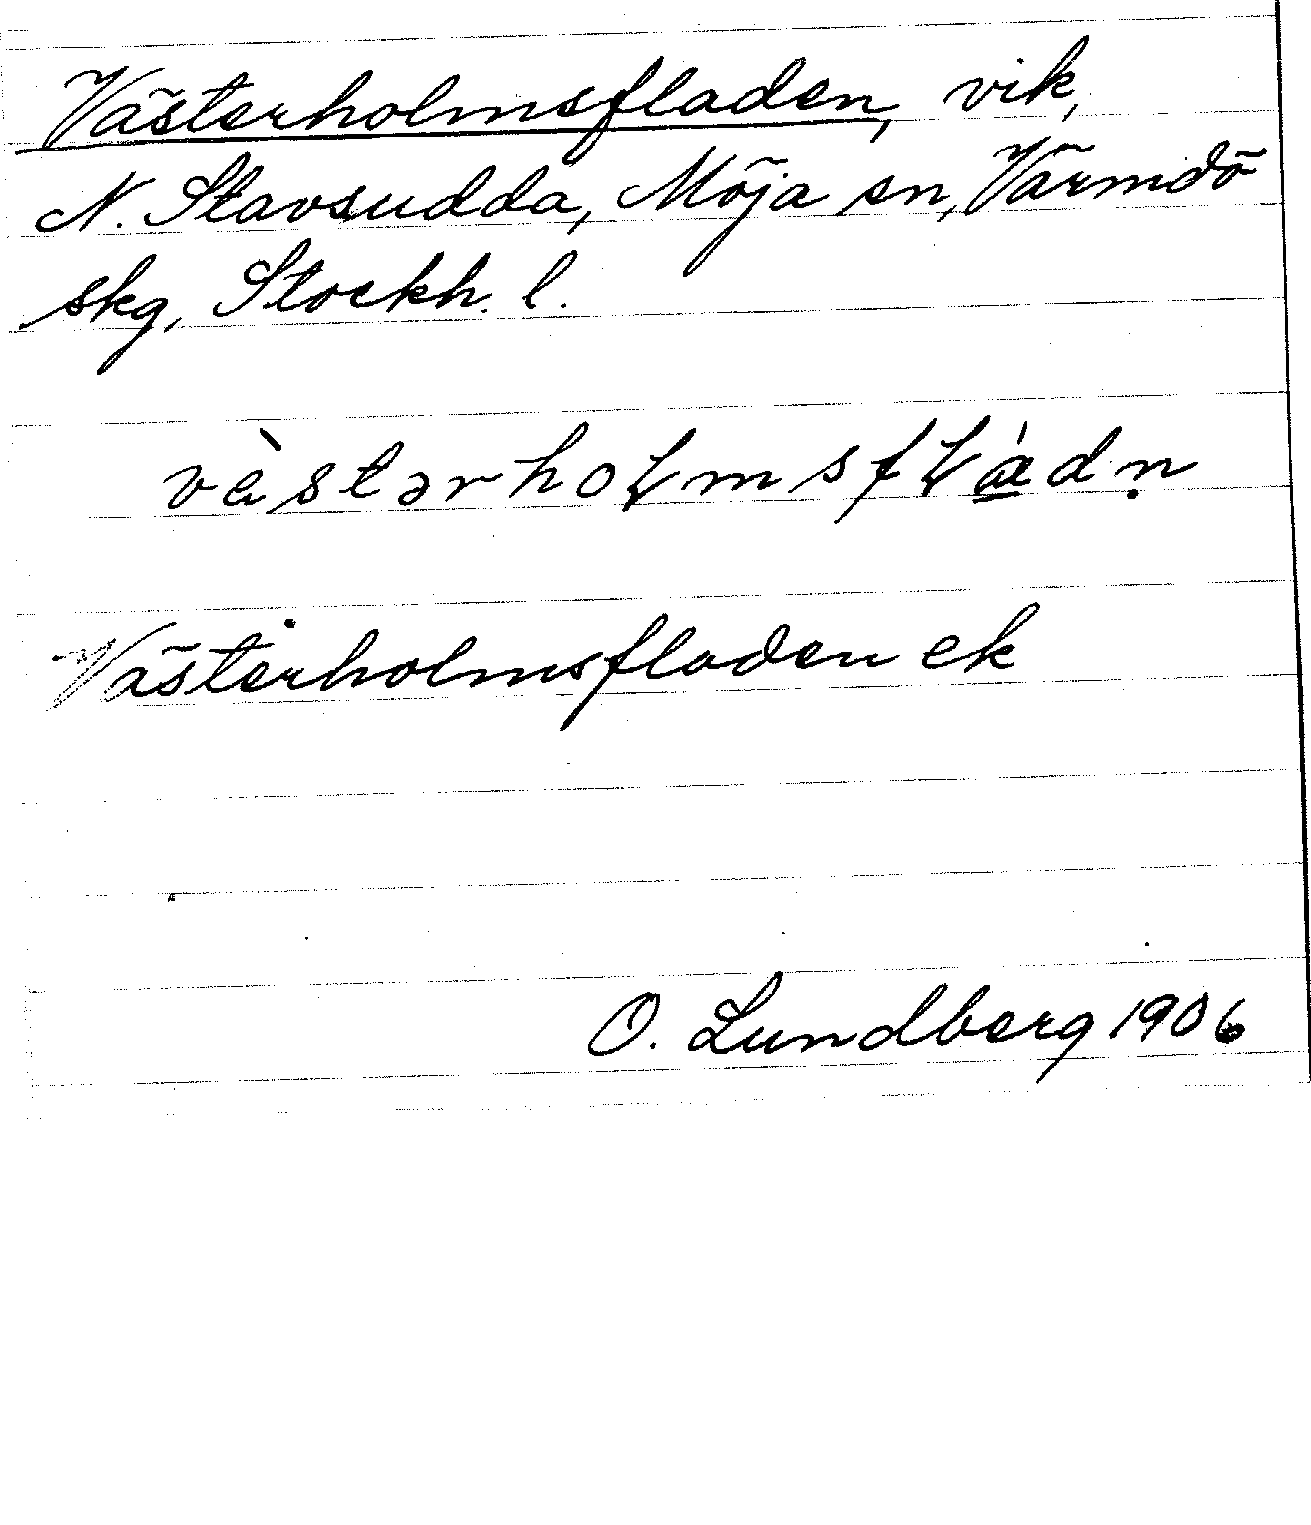 Västerholmsfladen, vik,
N. Stavsudda, Möja sn, Värmdö
skg, Stockh. l.
vèstərhoɫmsfɫádṇ
Västerholmsfladen ek
O. Lundberg 1906